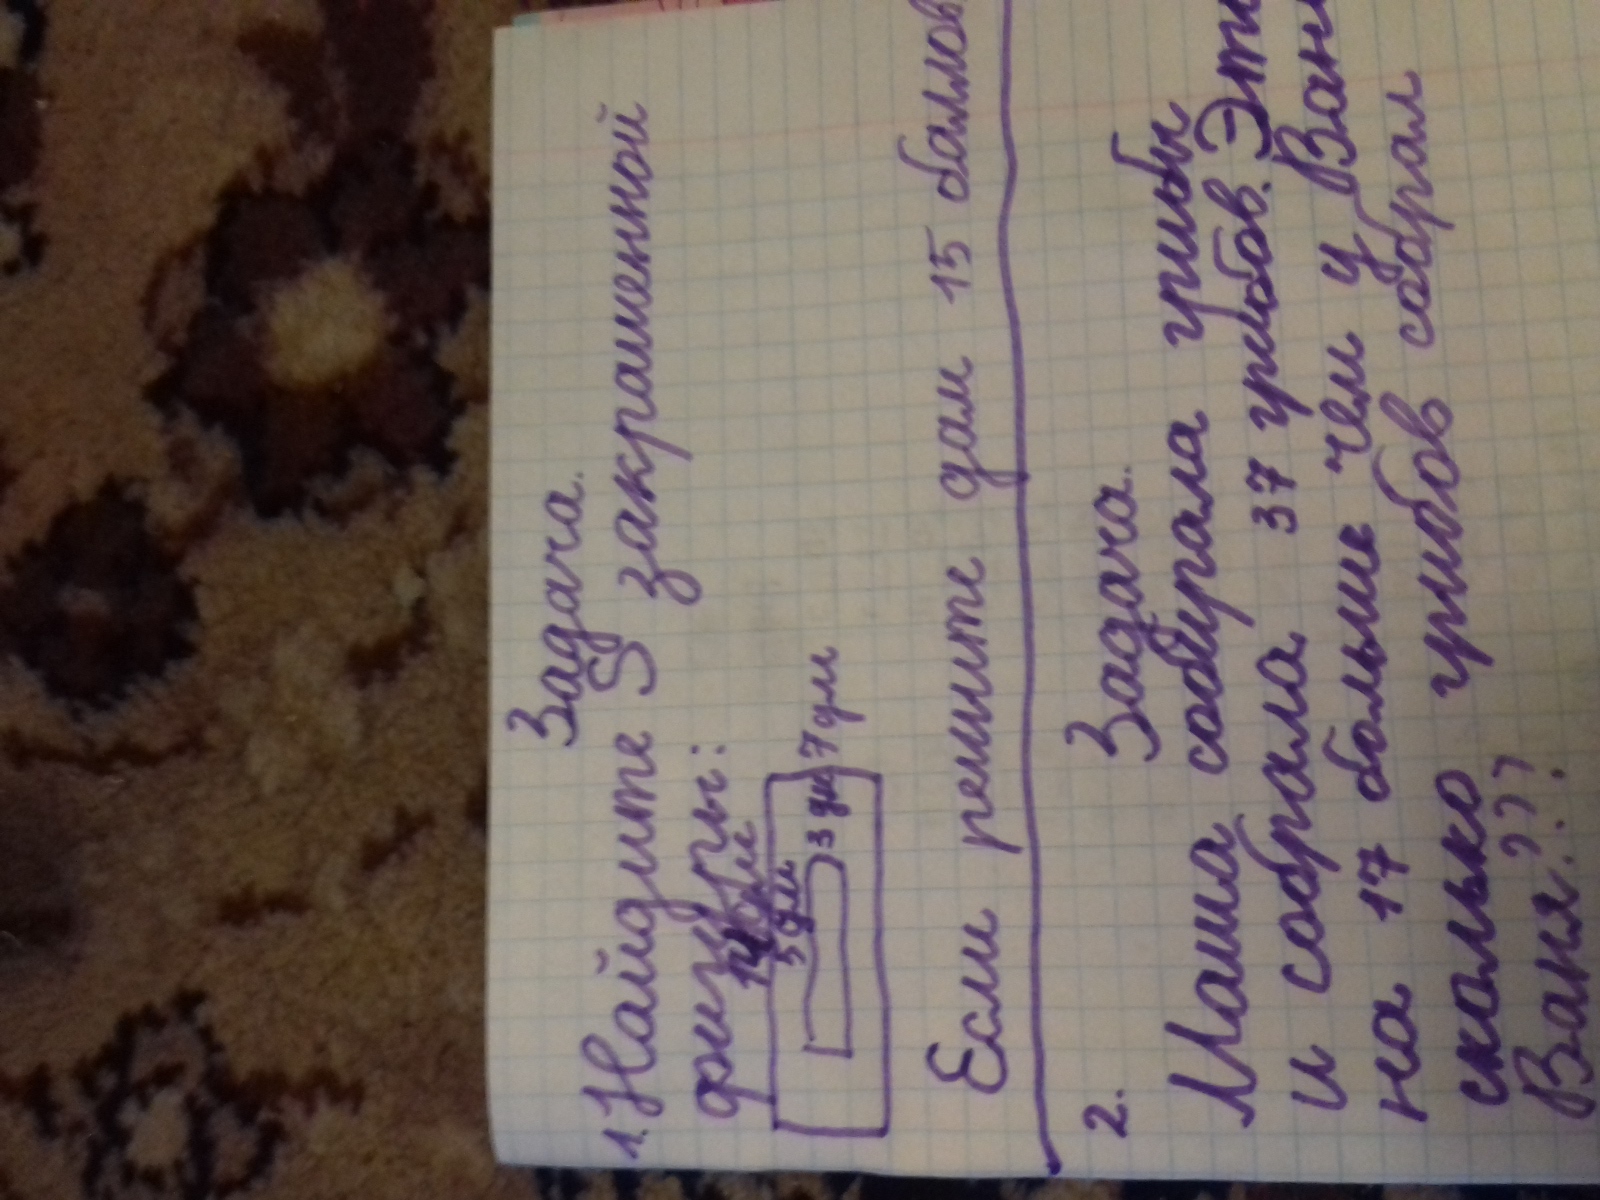 Задача.
1. Найдите S закрашенной
фигуры:
14 дм
5 дм
3 дм 7 дм
Если решите дам 15 баллов,
Задача.
2. Маша собирала грибы
и собрала 37 грибов. Эти
на 17 больше чем у Вани
сколько грибов собрал
Ваня???